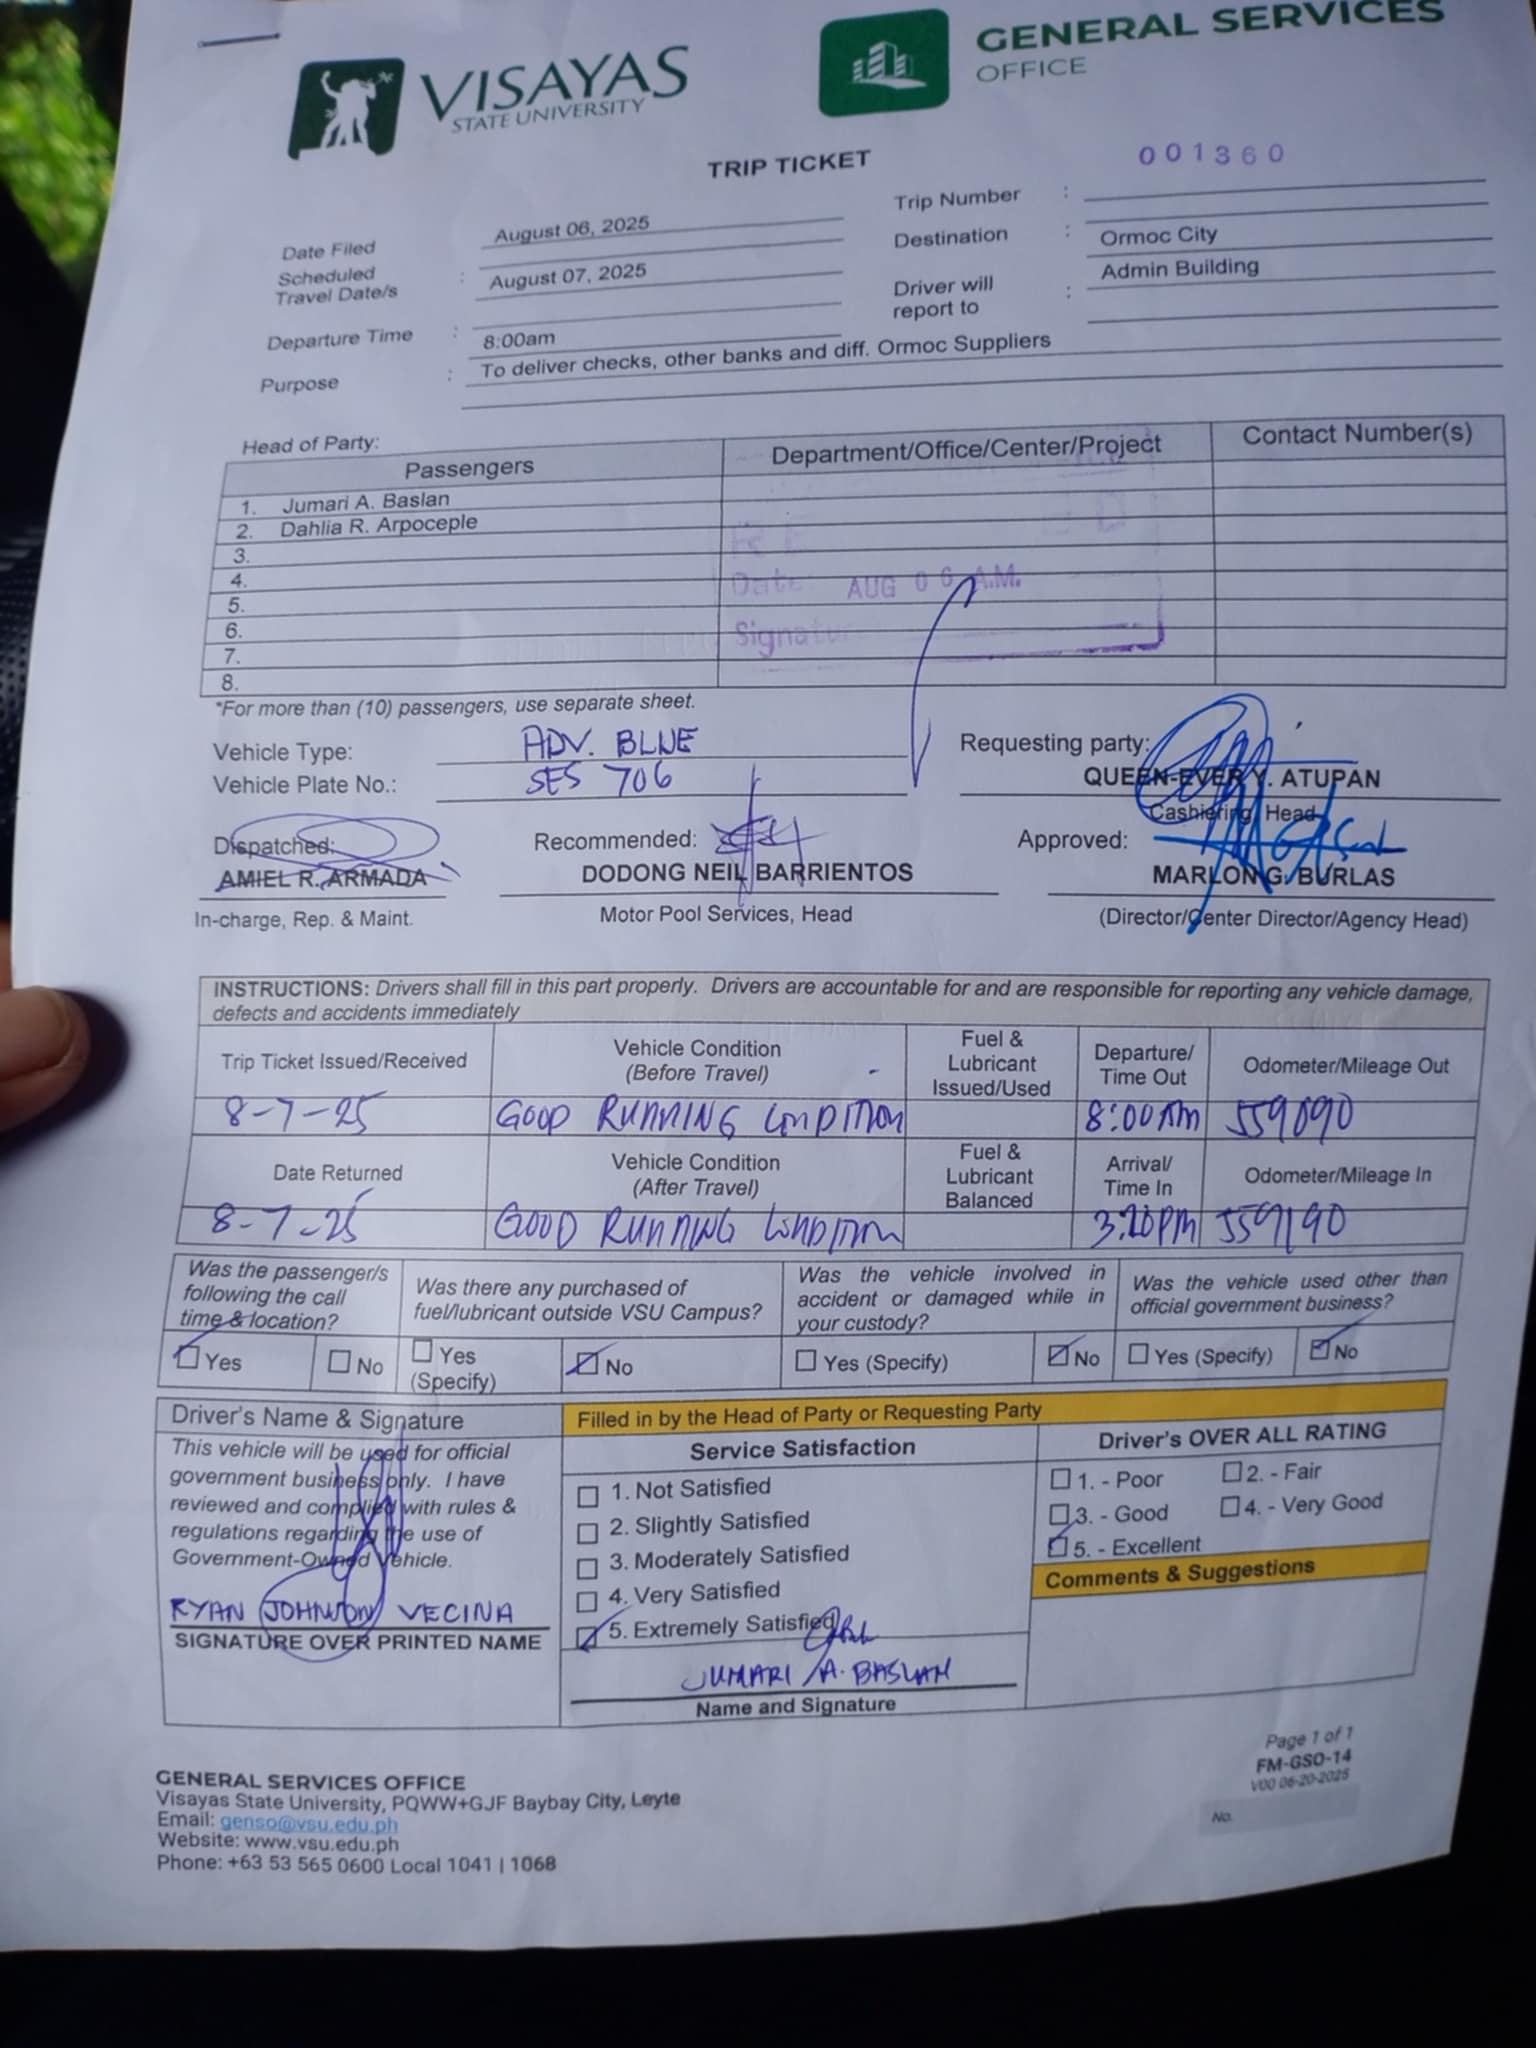 VISAYAS
STATE UNIVERSITY
GENERAL SERVICES
OFFICE
TRIP TICKET
001360
Date Filed August 06, 2025
Trip Number :
Scheduled Travel Date/s : August 07, 2025
Destination : Ormoc City
Driver will report to : Admin Building
Departure Time : 8:00am
Purpose : To deliver checks, other banks and diff. Ormoc Suppliers
Head of Party:
Passengers Department/Office/Center/Project Contact Number(s)
1. Jumari A. Baslan
2. Dahlia R. Arpoceple
3.
4.
5.
6.
7.
8.
Date AUG 06 A.M.
*For more than (10) passengers, use separate sheet.
Vehicle Type: ADV. BLUE
Vehicle Plate No.: SES 706
Requesting party:
QUEEN-EVER Y. ATUPAN
Cashiering, Head
Dispatched: Recommended: Approved:
AMIEL R. ARMADA DODONG NEIL BARRIENTOS MARLON G. BURLAS
In-charge, Rep. & Maint. Motor Pool Services, Head (Director/Center Director/Agency Head)
INSTRUCTIONS: Drivers shall fill in this part properly. Drivers are accountable for and are responsible for reporting any vehicle damage,
defects and accidents immediately
Trip Ticket Issued/Received Vehicle Condition (Before Travel) Fuel & Lubricant Issued/Used Departure/ Time Out Odometer/Mileage Out
8-7-25 GOOD RUNNING CONDITION 8:00AM 559090
Date Returned Vehicle Condition (After Travel) Fuel & Lubricant Balanced Arrival/ Time In Odometer/Mileage In
8-7-25 GOOD RUNNING CONDITION 3:20PM 559190
Was the passenger/s following the call time & location?
Was there any purchased of fuel/lubricant outside VSU Campus?
Was the vehicle involved in accident or damaged while in your custody?
Was the vehicle used other than official government business?
Yes No Yes (Specify) No Yes (Specify) No Yes (Specify) No
Driver's Name & Signature
This vehicle will be used for official
government business only. I have
reviewed and complied with rules &
regulations regarding the use of
Government-Owned Vehicle.
RYAN JOHNSON VECINA
SIGNATURE OVER PRINTED NAME
Filled in by the Head of Party or Requesting Party
Service Satisfaction
1. Not Satisfied
2. Slightly Satisfied
3. Moderately Satisfied
4. Very Satisfied
5. Extremely Satisfied
JUMARI A. BASLAN
Name and Signature
Driver's OVER ALL RATING
1. - Poor 2. - Fair
3. - Good 4. - Very Good
5. - Excellent
Comments & Suggestions
Page 1 of 1
FM-GSO-14
V00 06-20-2025
No.
GENERAL SERVICES OFFICE
Visayas State University, PQWW+GJF Baybay City, Leyte
Email: genso@vsu.edu.ph
Website: www.vsu.edu.ph
Phone: +63 53 565 0600 Local 1041 | 1068